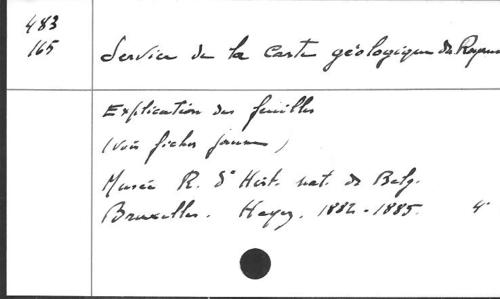 483
165
Service de la Carte géologique du Royaume
Explication des feuilles
(voir fiches jaunes)
Musée R. d'Hist. nat. de Belg.
Bruxelles. Hayez. 1882-1885. 4°